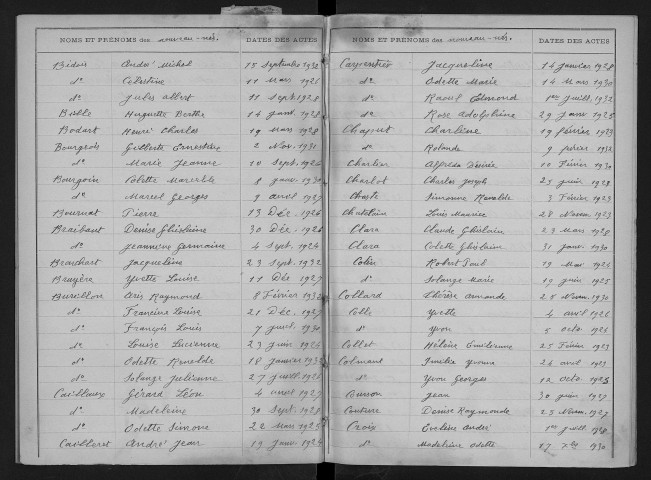 NOMS ET PRÉNOMS des nouveau-nés. DATES DES ACTES
Bédois André Michel 15 Septembre 1932
d° Célestine 11 Mars 1926
d° Jules Albert 11 Sept. 1928
Bielle Huguette Berthe 14 janv. 1928
Bodart Henri Charles 19 Mars 1928
Bourgeois Gilberte Ernestine 2 Nov. 1931
d° Marie Jeanne 10 Sept. 1926
Bourgoin Colette Marcelle 8 janv. 1930
d° Marcel Georges 9 avril 1927
Bournat Pierre 13 Déc. 1926
Braibant Denise Ghislaine 30 Déc. 1926
d° Jeannine Germaine 4 Sept. 1924
Branchart Jacqueline 23 Sept. 1932
Bruyère Yvette Louise 11 Déc. 1927
Burillon Aris Raymond 8 Février 1932
d° Francine Louise 21 Déc. 1927
d° François Louis 7 juil. 1930
d° Louise Lucienne 23 juin 1926
d° Odette Renelde 18 janvier 1932
d° Solange Julienne 27 juill. 1926
Cailleaux Gérard Léon 4 avril 1927
d° Madeleine 30 Sept. 1928
d° Odette Simone 22 Mars 1925
Cailleret André Jean 19 janv. 1924
NOMS ET PRÉNOMS des nouveau-nés. DATES DES ACTES
Carpentier Jacqueline 14 janvier 1928
d° Odette Marie 14 Mars 1930
d° Raoul Edmond 1er juill. 1932
d° Rose Adolphine 29 janv. 1925
Chaput Charlène 19 février 1923
d° Rolande 9 février 1932
Charlier Alfreda Désirée 10 Février 1930
Charlot Charles Joseph 25 juin 1929
Chaste Simonne Renelde 3 Février 1923
Chatelain Louis Maurice 28 Novem. 1923
Clara Claude Ghislain 23 Mars 1928
Clara Colette Ghislaine 31 janv. 1930
Colin Robert Paul 19 Mai 1926
d° Solange Marie 19 juin 1925
Collard Thérèse Armande 25 Novem. 1930
Colle Yvette 4 avril 1926
d° Yvon 5 octo. 1926
Collet Hélène Emilienne 25 Février 1923
Colmant Emélie Yvonne 26 avril 1923
d° Yvon Georges 12 Octo. 1925
Buisson Jean 30 juin 1927
Couture Denise Raymonde 25 Novem. 1927
Croix Eveline André 1er juill. 1928
d° Madeleine Odette 17 xbre 1930